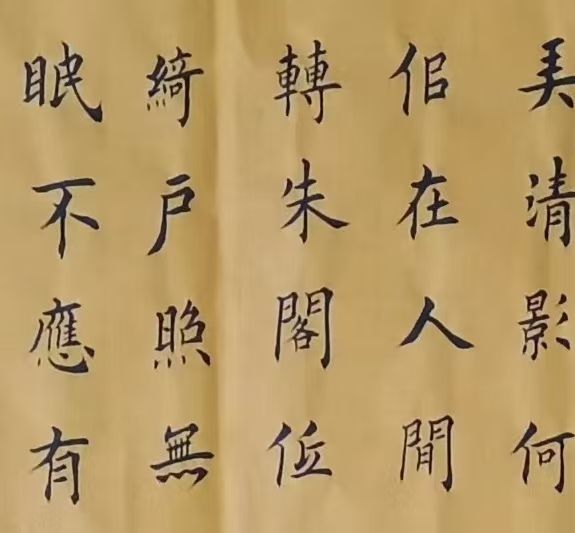 清影何
佀在人閒
轉朱閣低
綺户照無
眠不應有